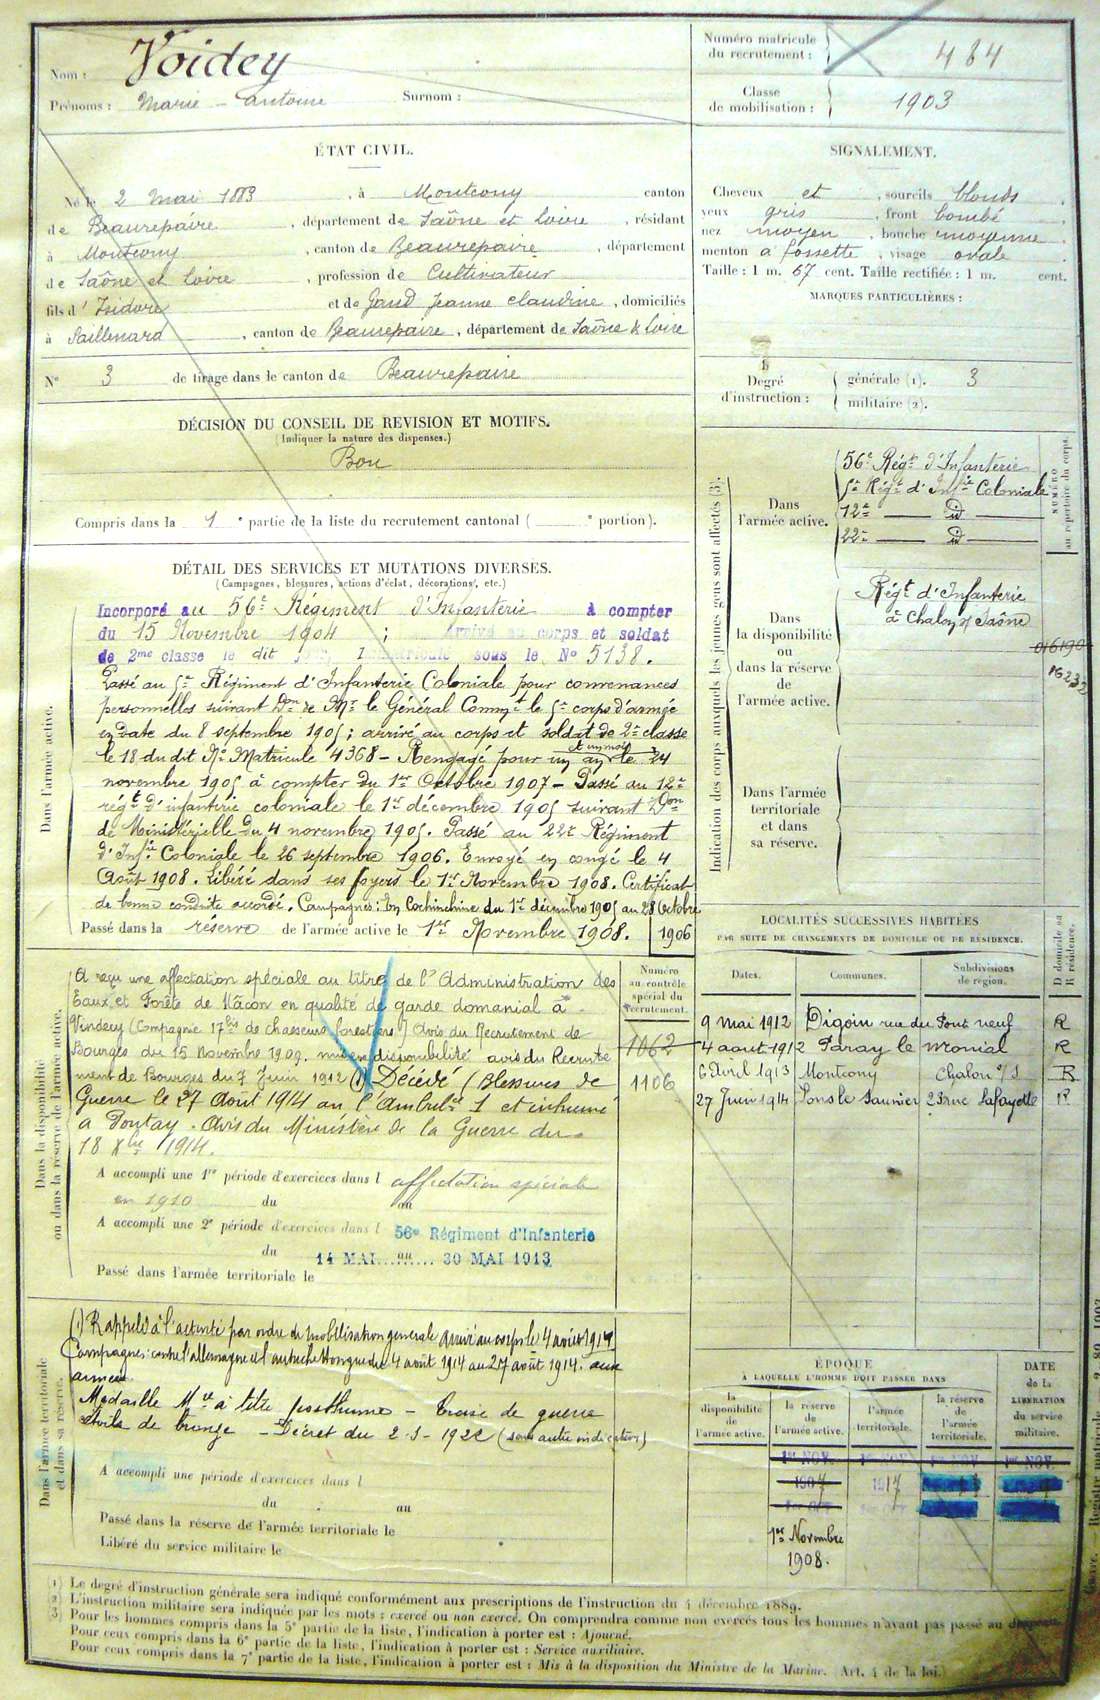 Nom : Voidey
Prénoms : Marie - Antoine Surnom :
Numéro matricule du recrutement : 484
Classe de mobilisation : 1903
ÉTAT CIVIL.
Né le 2 Mai 1883, à Montcony canton
de Beaurepaire, département de Saône et Loire, résidant
à Montcony, canton de Beaurepaire, département
de Saône et Loire, profession de Cultivateur
fils d' Isidore et de Gaud Jeanne Claudine, domiciliés
à Saillenard, canton de Beaurepaire, département de Saône & Loire
N° 3 de tirage dans le canton de Beaurepaire
SIGNALEMENT.
Cheveux et, sourcils blonds,
yeux gris, front bombé,
nez moyen, bouche moyenne,
menton à fossette, visage ovale
Taille : 1 m. 67 cent. Taille rectifiée : 1 m. cent.
MARQUES PARTICULIÈRES :
Degré d'instruction : générale (1). 3
militaire (2).
DÉCISION DU CONSEIL DE REVISION ET MOTIFS.
(Indiquer la nature des dispenses.)
Bon
Compris dans la 1e partie de la liste du recrutement cantonal ( e portion).
DÉTAIL DES SERVICES ET MUTATIONS DIVERSES.
(Campagnes, blessures, actions d'éclat, décorations, etc.)
Dans l'armée active.
Incorporé au 56e Régiment d'Infanterie à compter
du 15 Novembre 1904 ; Arrivé au corps et soldat
de 2me classe le dit jour, Immatriculé sous le No 5138.
Passé au 5e Régiment d'Infanterie Coloniale pour convenances
personnelles suivant Don de Mr le Général Commt le 5e corps d'armée
en date du 8 septembre 1905 ; arrivé au corps et soldat de 2e classe
le 18 du dit No Matricule 4368 - Rengagé pour un an et un mois le 24
novembre 1905 à compter du 1er Octobre 1907 - Passé au 12e
régt d'infanterie coloniale le 1er décembre 1905 suivant Don
de Ministérielle du 4 novembre 1905. Passé au 22e Régiment
d'Infie Coloniale le 26 septembre 1906. Envoyé en congé le 4
Août 1908. Libéré dans ses foyers le 1er Novembre 1908. Certificat
de bonne conduite accordé. Campagnes : En Cochinchine du 1er décembre 1905 au 28 Octobre
1906
Passé dans la réserve de l'armée active le 1er Novembre 1908.
Indication des corps auxquels les jeunes gens sont affectés (3).
NUMÉRO au répertoire du corps.
Dans l'armée active.
56e Régt d'Infanterie
5e Régt d'Infie Coloniale
12e — id —
22e — id —
Dans la disponibilité ou dans la réserve de l'armée active.
Régt d'Infanterie
à Chalon s/ Saône
Dans l'armée territoriale et dans sa réserve.
Dans la disponibilité ou dans la réserve de l'armée active.
A reçu une affectation spéciale au titre de l'Administration des
Eaux et Forêts de Mâcon en qualité de garde domanial à
Vindecy (Compagnie 17bis de chasseurs forestiers) Avis du Recrutement de
Bourges du 15 Novembre 1909. mis en disponibilité avis du Recrute
ment de Bourges du 7 Juin 1912 (1) Décédé (Blessures de
Guerre le 27 Août 1914 au l'Ambulce 1 et inhumé
a Poutay - Avis du Ministère de la Guerre du
18 Xbre 1914.
Numéro au contrôle spécial du recrutement.
1062
1106
A accompli une 1re période d'exercices dans l affectation spéciale
en 1910 du au
A accompli une 2e période d'exercices dans l 56e Régiment d'Infanterie
du 14 MAI au 30 MAI 1913
Passé dans l'armée territoriale le
LOCALITÉS SUCCESSIVES HABITÉES
PAR SUITE DE CHANGEMENTS DE DOMICILE OU DE RÉSIDENCE.
Dates. Communes. Subdivisions de région. D domicile ou R résidence.
9 mai 1912 Digoin rue du Pont neuf R
4 aout 1912 Paray le Monial R
6 Avril 1913 Montcony Chalon s/S R
27 Juin 1914 Lons le Saunier 23 rue Lafayette R
Dans l'armée territoriale et dans sa réserve.
(1) Rappelé à l'activité par ordre de mobilisation générale arrivé au corps le 4 août 1914
Campagnes : contre l'allemagne et l'autriche Hongrie du 4 août 1914 au 27 août 1914. aux
armées
Médaille Mre à titre posthume - Croix de guerre
étoile de bronze - Décret du 2-5-1922 (sans autre indication)
A accompli une période d'exercices dans l
du au
Passé dans la réserve de l'armée territoriale le
Libéré du service militaire le
ÉPOQUE
À LAQUELLE L'HOMME DOIT PASSER DANS
la disponibilité de l'armée active.
la réserve de l'armée active.
l'armée territoriale.
la réserve de l'armée territoriale.
DATE de la LIBÉRATION du service militaire.
1er NOV. 1er NOV. 1er NOV. 1er NOV.
1907 1917
1er Novembre
1908.
(1) Le degré d'instruction générale sera indiqué conformément aux prescriptions de l'instruction du 4 décembre 1889.
(2) L'instruction militaire sera indiquée par les mots : exercé ou non exercé. On comprendra comme non exercés tous les hommes n'ayant pas passé au drapeau.
(3) Pour les hommes compris dans la 5e partie de la liste, l'indication à porter est : Ajourné.
Pour ceux compris dans la 6e partie de la liste, l'indication à porter est : Service auxiliaire.
Pour ceux compris dans la 7e partie de la liste, l'indication à porter est : Mis à la disposition du Ministre de la Marine. (Art. 4 de la loi.)